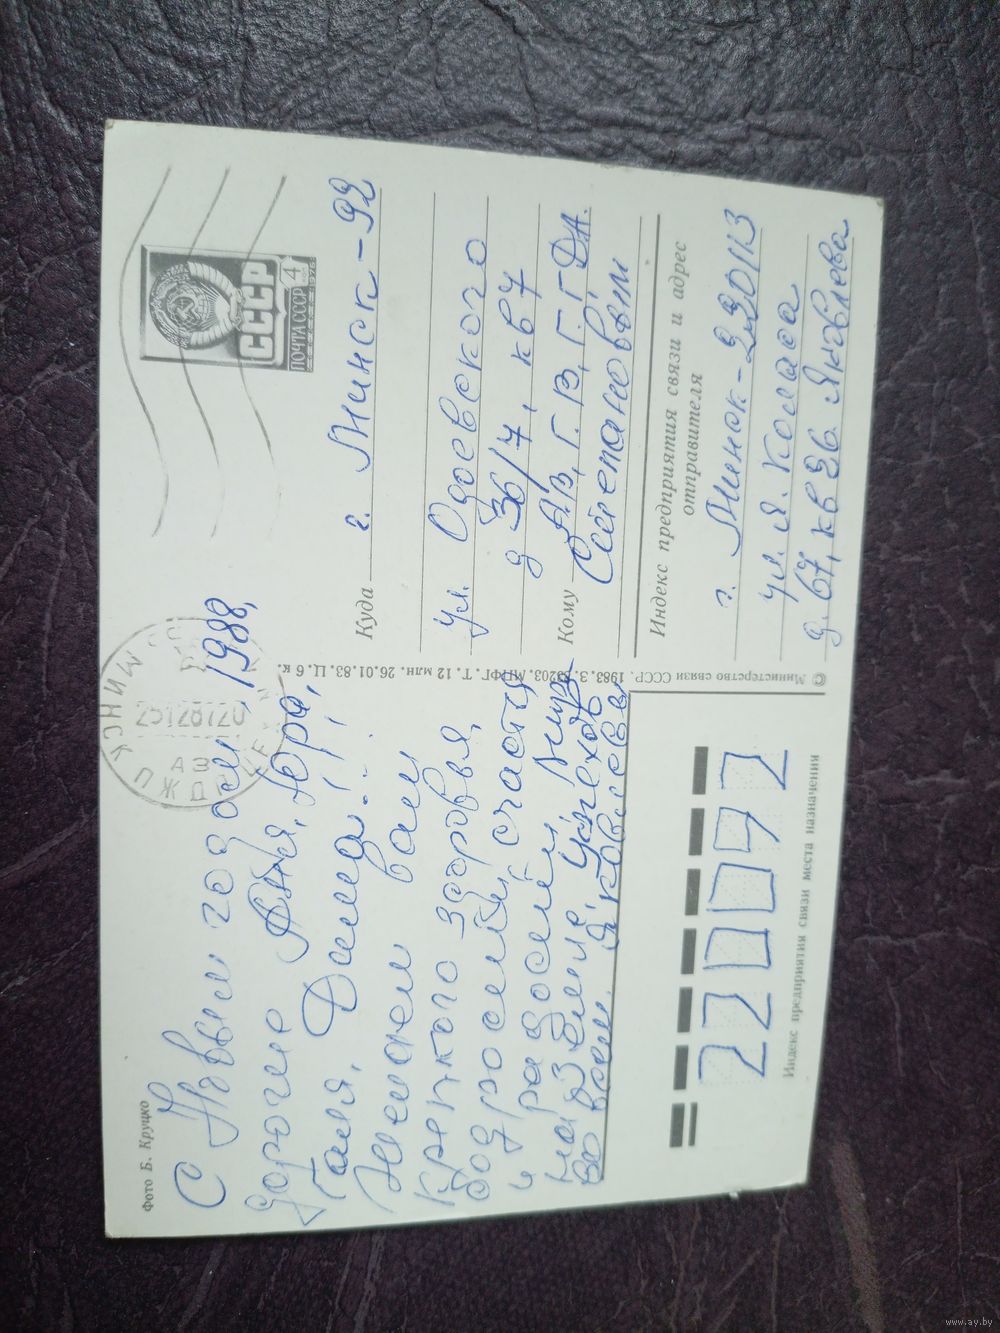 Фото Б. Круцко
С Новым годом, 1988,
дорогие Аня, Юра,
Галя, Дима!!!
Желаем вам
крепкого здоровья,
бодрости, счастья
и радостей, мира
на Земле, успехов
во всем. Яковлевы
МИНСК
251287 20
АЗ
СССР
ПОЧТА СССР 4
1976
Куда г. Минск-92
ул. Одоевского
д 36/7, кв 7
Кому
Степановым
Индекс предприятия связи и адрес
отправителя
г. Минск-220113
ул. Я. Коласа
д. 67, кв 26. Яковлева
© Министерство связи СССР. 1983. З. 73203. МПФГ. Т. 12 млн. 26.01.83. Ц. 6 к.
220092
Индекс предприятия связи места назначения
www.ay.by